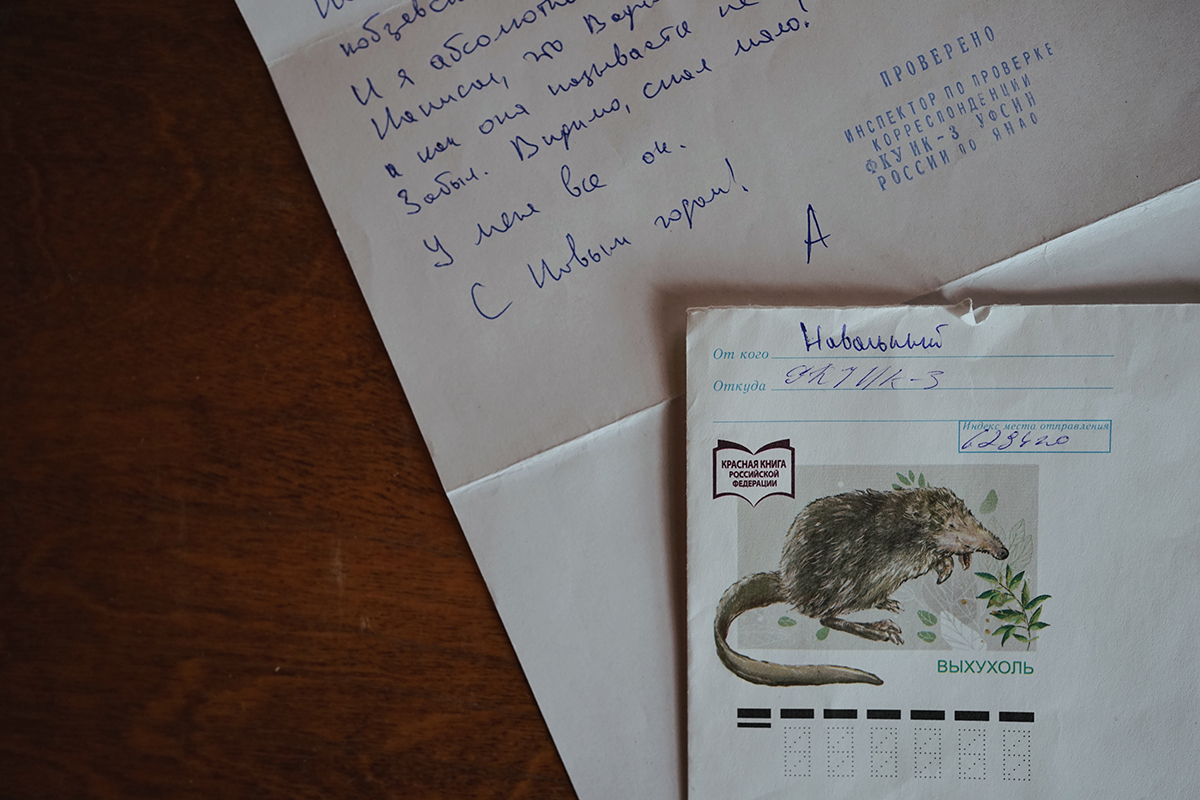 И я абсолютно
Написал, что
а как она называется не
Забыл. Видимо, спал мало!
У меня все ок.
С Новым годом!
А
ПРОВЕРЕНО
ИНСПЕКТОР ПО ПРОВЕРКЕ
КОРРЕСПОНДЕНЦИИ
ФКУ ИК-3 УФСИН
РОССИИ ПО ЯНАО
От кого Навальный
Откуда ФКУ ИК-3
Индекс места отправления
629420
КРАСНАЯ КНИГА
РОССИЙСКОЙ
ФЕДЕРАЦИИ
ВЫХУХОЛЬ